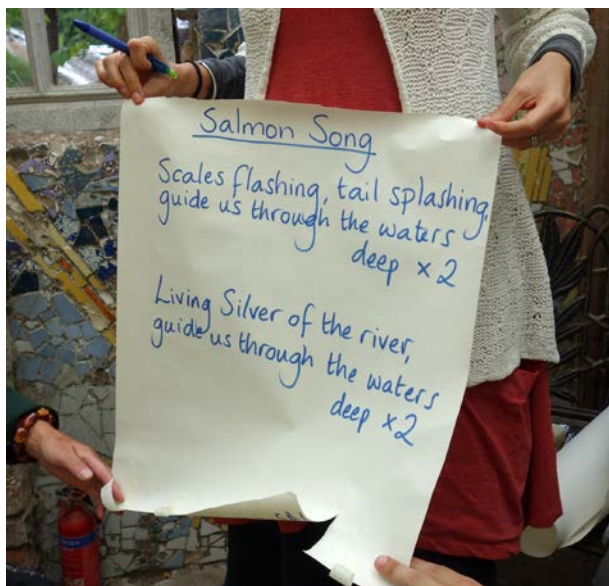 Salmon Song
Scales flashing, tail splashing,
guide us through the waters
deep x 2
Living Silver of the river,
guide us through the waters
deep x2